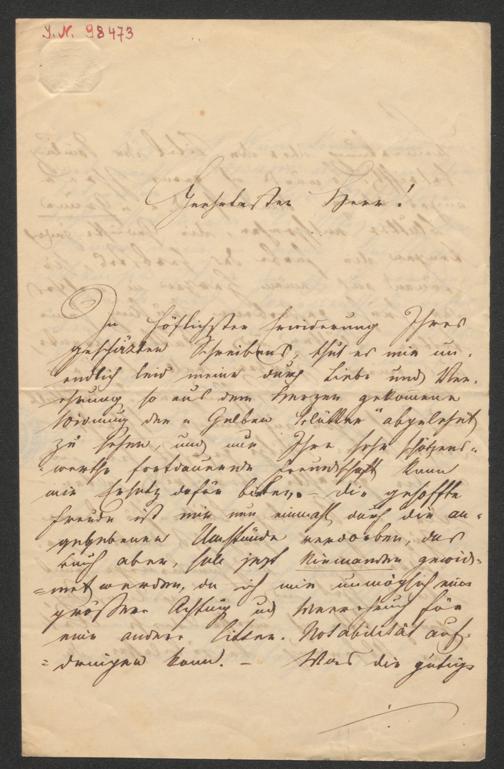 I. N. 98473
Geehrtester Herr!
In höflichster Erwiderung Ihres
geschäzten Schreibens, thut es mir un-
endlich leid meine durch Liebe und Ver-
ehrung so aus dem Herzen gekomene
Widmung der „Gelben Blätter" abgelehnt
zu sehen, und nur Ihre sehr schätzens-
werthe fortdauernde Freundschaft kann
mir Ersatz dafür bieten. – Die gehoffte
Freude ist mir nun einmahl durch die an-
gegebenen Umstände verdorben, das
Buch aber, soll jezt Niemanden gewid-
=met werden, da ich mir unmöglich eine
größere Achtung und Verehrung für
eine andere litter. Notabilität auf-
=dringen kann. – Was die gütige